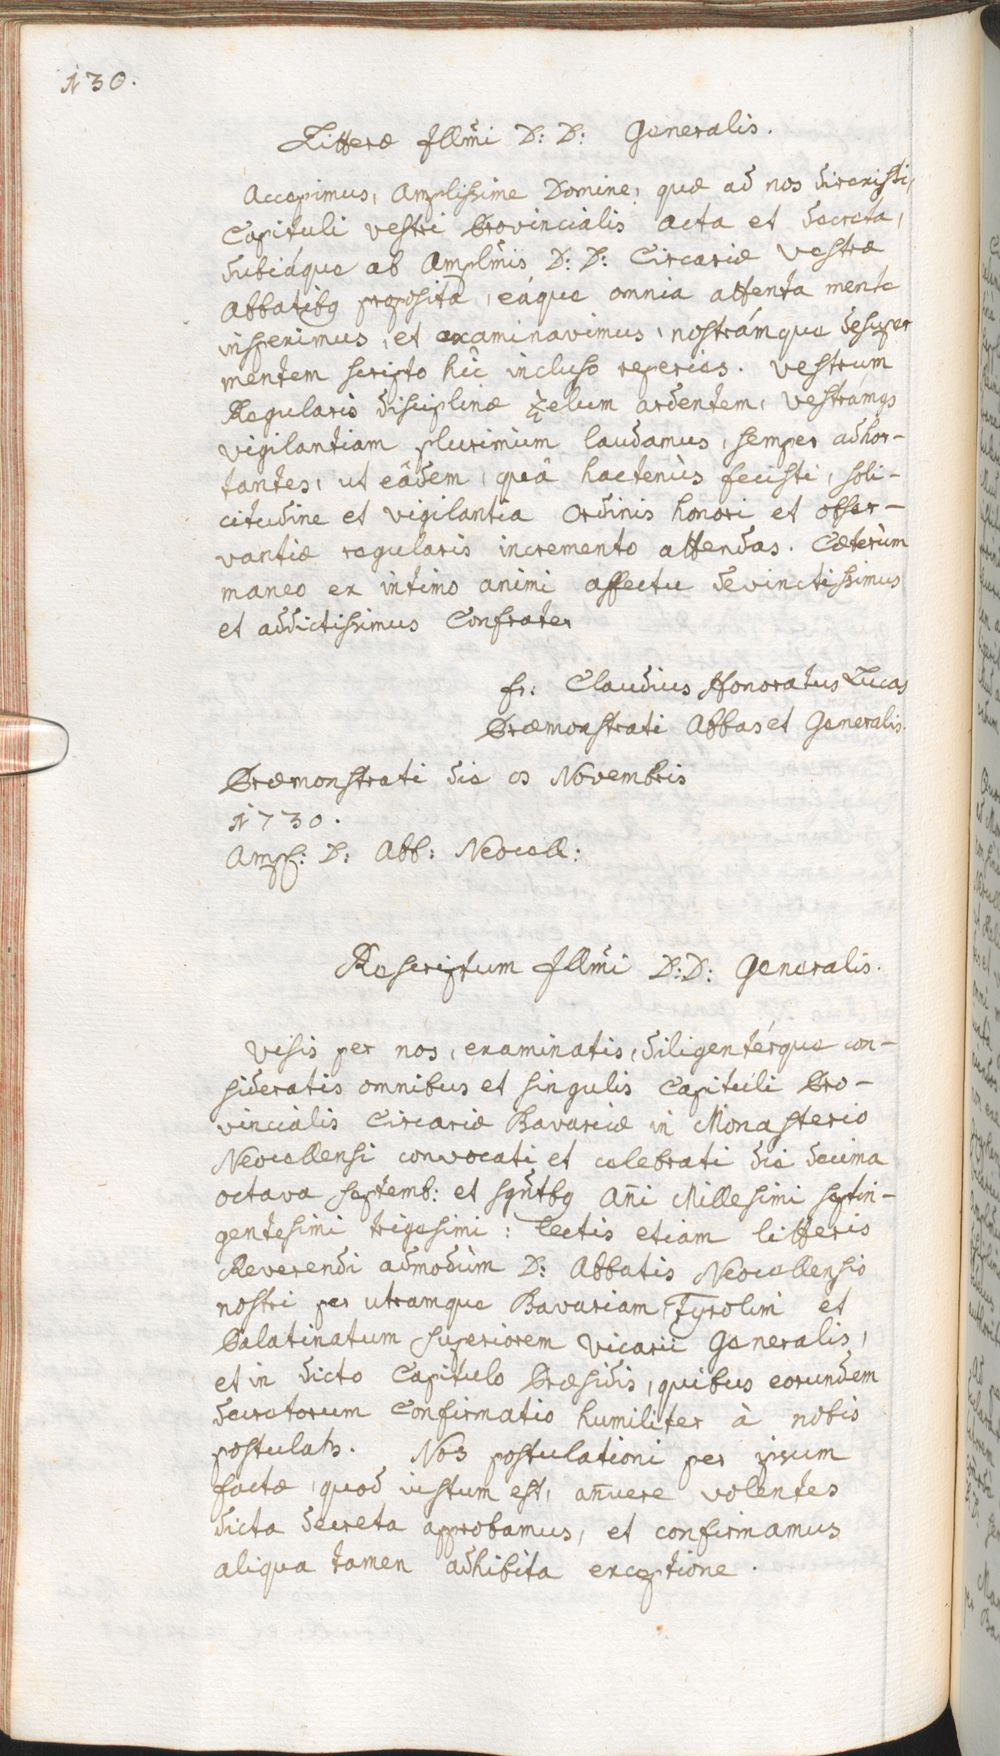 130.
Litteræ Illm̃i D: D: Generalis.
Accepimus, Amplissime Domine, quæ ad nos direxisti,
Capituli vestri Provincialis acta et decreta,
dubiáque ab Amplm̃is D: D: Circariæ Vestræ
Abbatibq proposita, eáque omnia attenta mente
inspeximus, et examinavimus, nostrámque desuper
mentem scripto hîc incluso reperies. Vestrum
Regularis disciplinæ zelum ardentem, Vestrámqs
vigilantiam plurimium laudamus, semper adhor-
tantes, ut eâdem, quâ hactenùs fecisti, soli-
citudine et vigilantia Ordinis honori et obser-
vantiæ regularis incremento attendas. Cæterùm
maneo ex intimo animi affectu devinctissimus
et addictissimus Confrater
fr: Claudius Honoratus Lucas
Præmonstrati Abbas et Generalis.
Præmonstrati die Novembris
1730.
Ampl: D: Abb: Neocell:
Rescriptum Illm̃i D: D: Generalis.
Visis per nos, examinatis, diligentérque con-
sideratis omnibus et singulis Capituli Pro-
vincialis Circariæ Bavariæ in Monasterio
Neocellensi convocati et celebrati die decima
octava septemb: et sqñtbq Añi Millesimi septin-
gentesimi trigesimi: lectis etiam litteris
Reverendi admodùm D: Abbatis Neocellensis
nostri per utramque Bavariam, Tyrolim et
Palatinatum superiorem Vicarii Generalis,
et in dicto Capitulo Præsidis, quibus eorundem
decretorum Confirmatio humiliter à nobis
postulatr. Nos postulationi per ipsum
factæ, quod iustum est, añuere volentes
dicta decreta approbamus, et confirmamus
aliqua tamen adhibita exceptione.